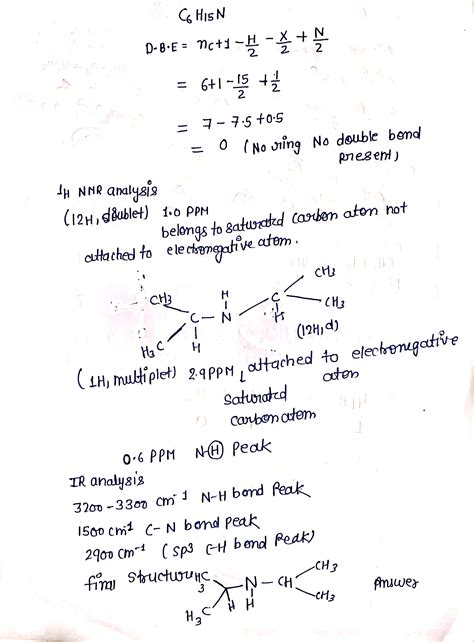 C6H15N
D.B.E = nc+1 - H/2 - X/2 + N/2
= 6+1 - 15/2 + 1/2
= 7 - 7.5 + 0.5
= 0 (No ring No double bond
present)
1H NMR analysis
(12H, doublet) 1.0 PPM
belongs to saturated carbon atom not
attached to electronegative atom.
CH3
CH3 H C
C - N H CH3
H3C H (12H, d)
(1H, multiplet) 2.9 PPM attached to electronegative
saturated atom
carbon atom
0.6 PPM N-H Peak
IR analysis
3200-3300 cm-1 N-H bond Peak
1500 cm-1 C-N bond peak
2900 cm-1 (sp3 C-H bond Peak)
final structure H3C N - CH CH3
CH3 Answer
H3C H H